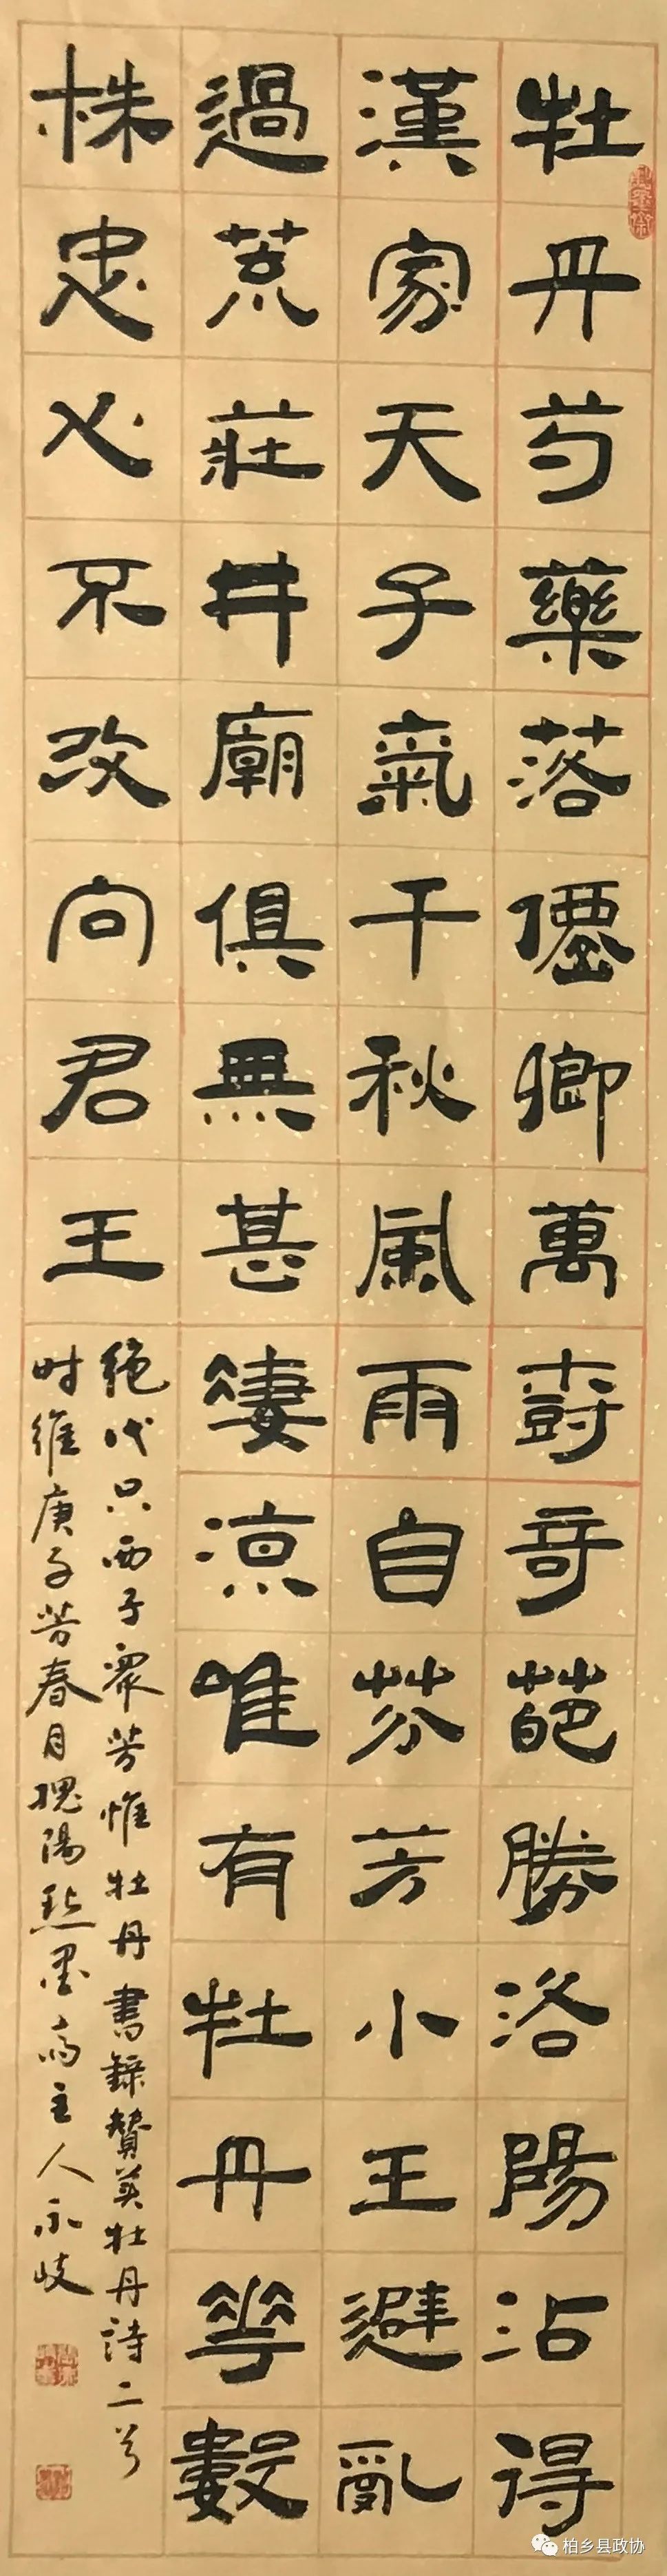 牡丹芍藥落僊鄉萬壽奇葩勝洛陽沾得
漢家天子氣千秋風雨自芬芳小王避亂
過荒莊井廟俱無甚淒涼唯有牡丹花數
株忠心不改向君王
絶代只西子衆芳惟牡丹書録贊美牡丹詩二首
时維庚子芳春月槐陽點墨齋主人永岐
柏乡县政协